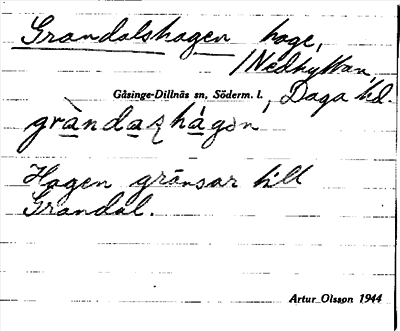 Grandalshagen hage,
/Nedhyttan,
Gåsinge-Dillnäs sn, Söderm. l., Daga hd.
gràndaʂhágən
Hagen gränsar till
Grandal.
Artur Olsson 1944